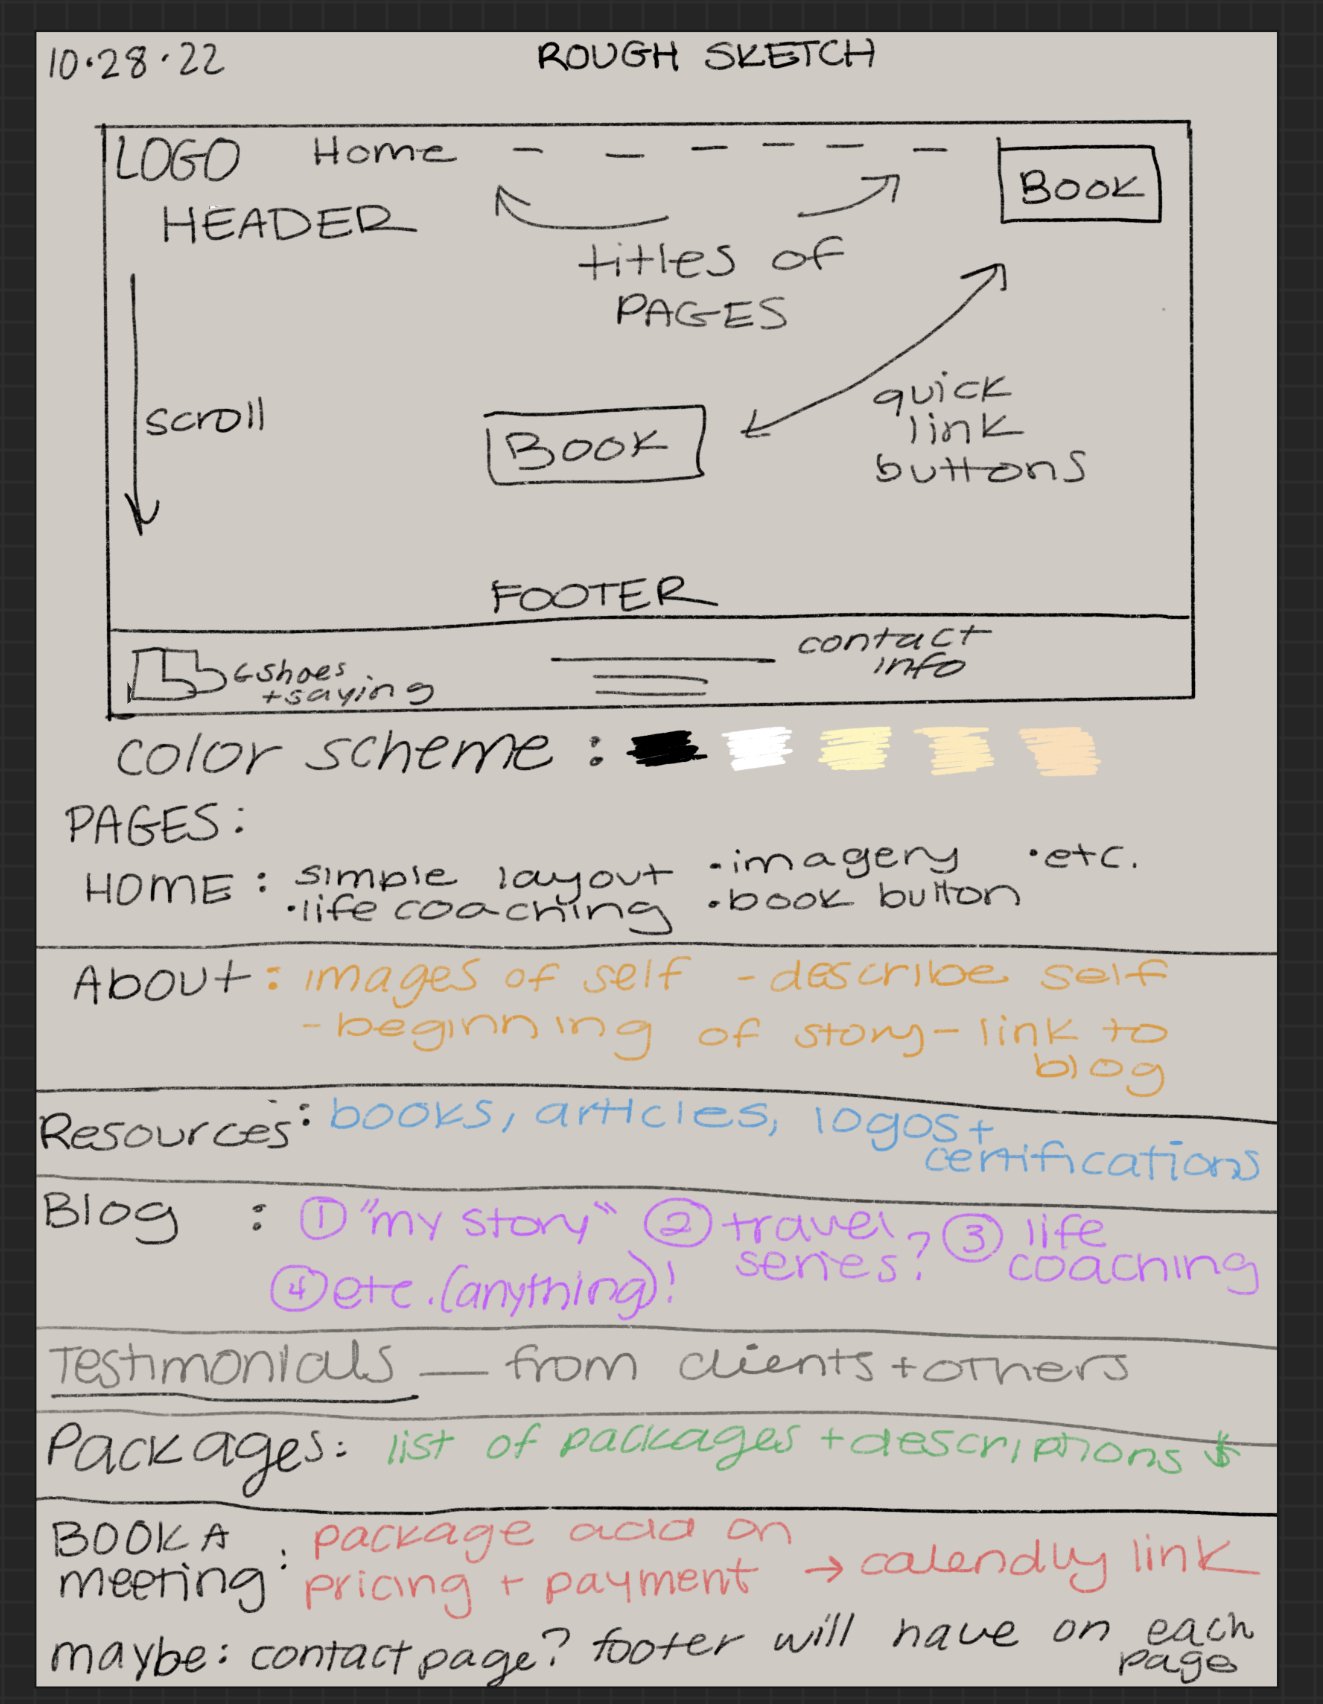 10.28.22
ROUGH SKETCH
LOGO Home
Book
HEADER
titles of
PAGES
scroll
Book
quick
link
buttons
FOOTER
shoes
+saying
contact
info
color scheme :
PAGES:
HOME : simple layout •imagery •etc.
•life coaching •book button
About: images of self - describe self
- beginning of story - link to
blog
Resources: books, articles, logos +
certifications
Blog : ① "my story" ② travel
series? ③ life
coaching
④ etc. (anything)!
Testimonials — from clients + others
Packages: list of packages + descriptions $
BOOK A
meeting: package add on
pricing + payment → calendly link
maybe: contact page? footer will have on each
page